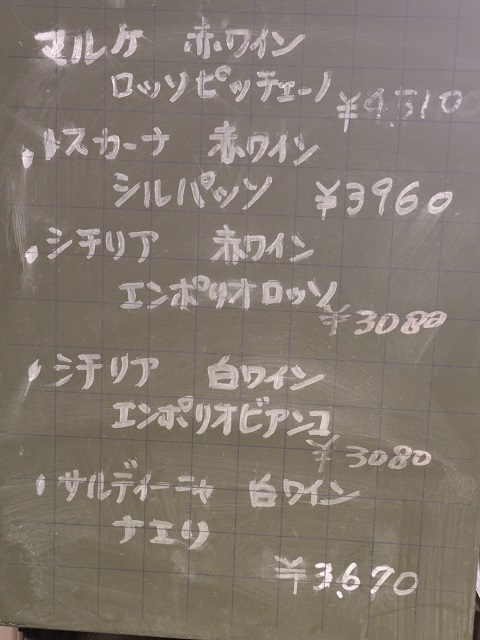 マルケ 赤ワイン
ロッソピッチェーノ
¥4,510
・トスカーナ 赤ワイン
シルパッソ ¥3960
・シチリア 赤ワイン
エンポリオロッソ
¥3080
・シチリア 白ワイン
エンポリオビアンコ
¥3080
・サルディーニャ 白ワイン
ナエリ
¥3,670